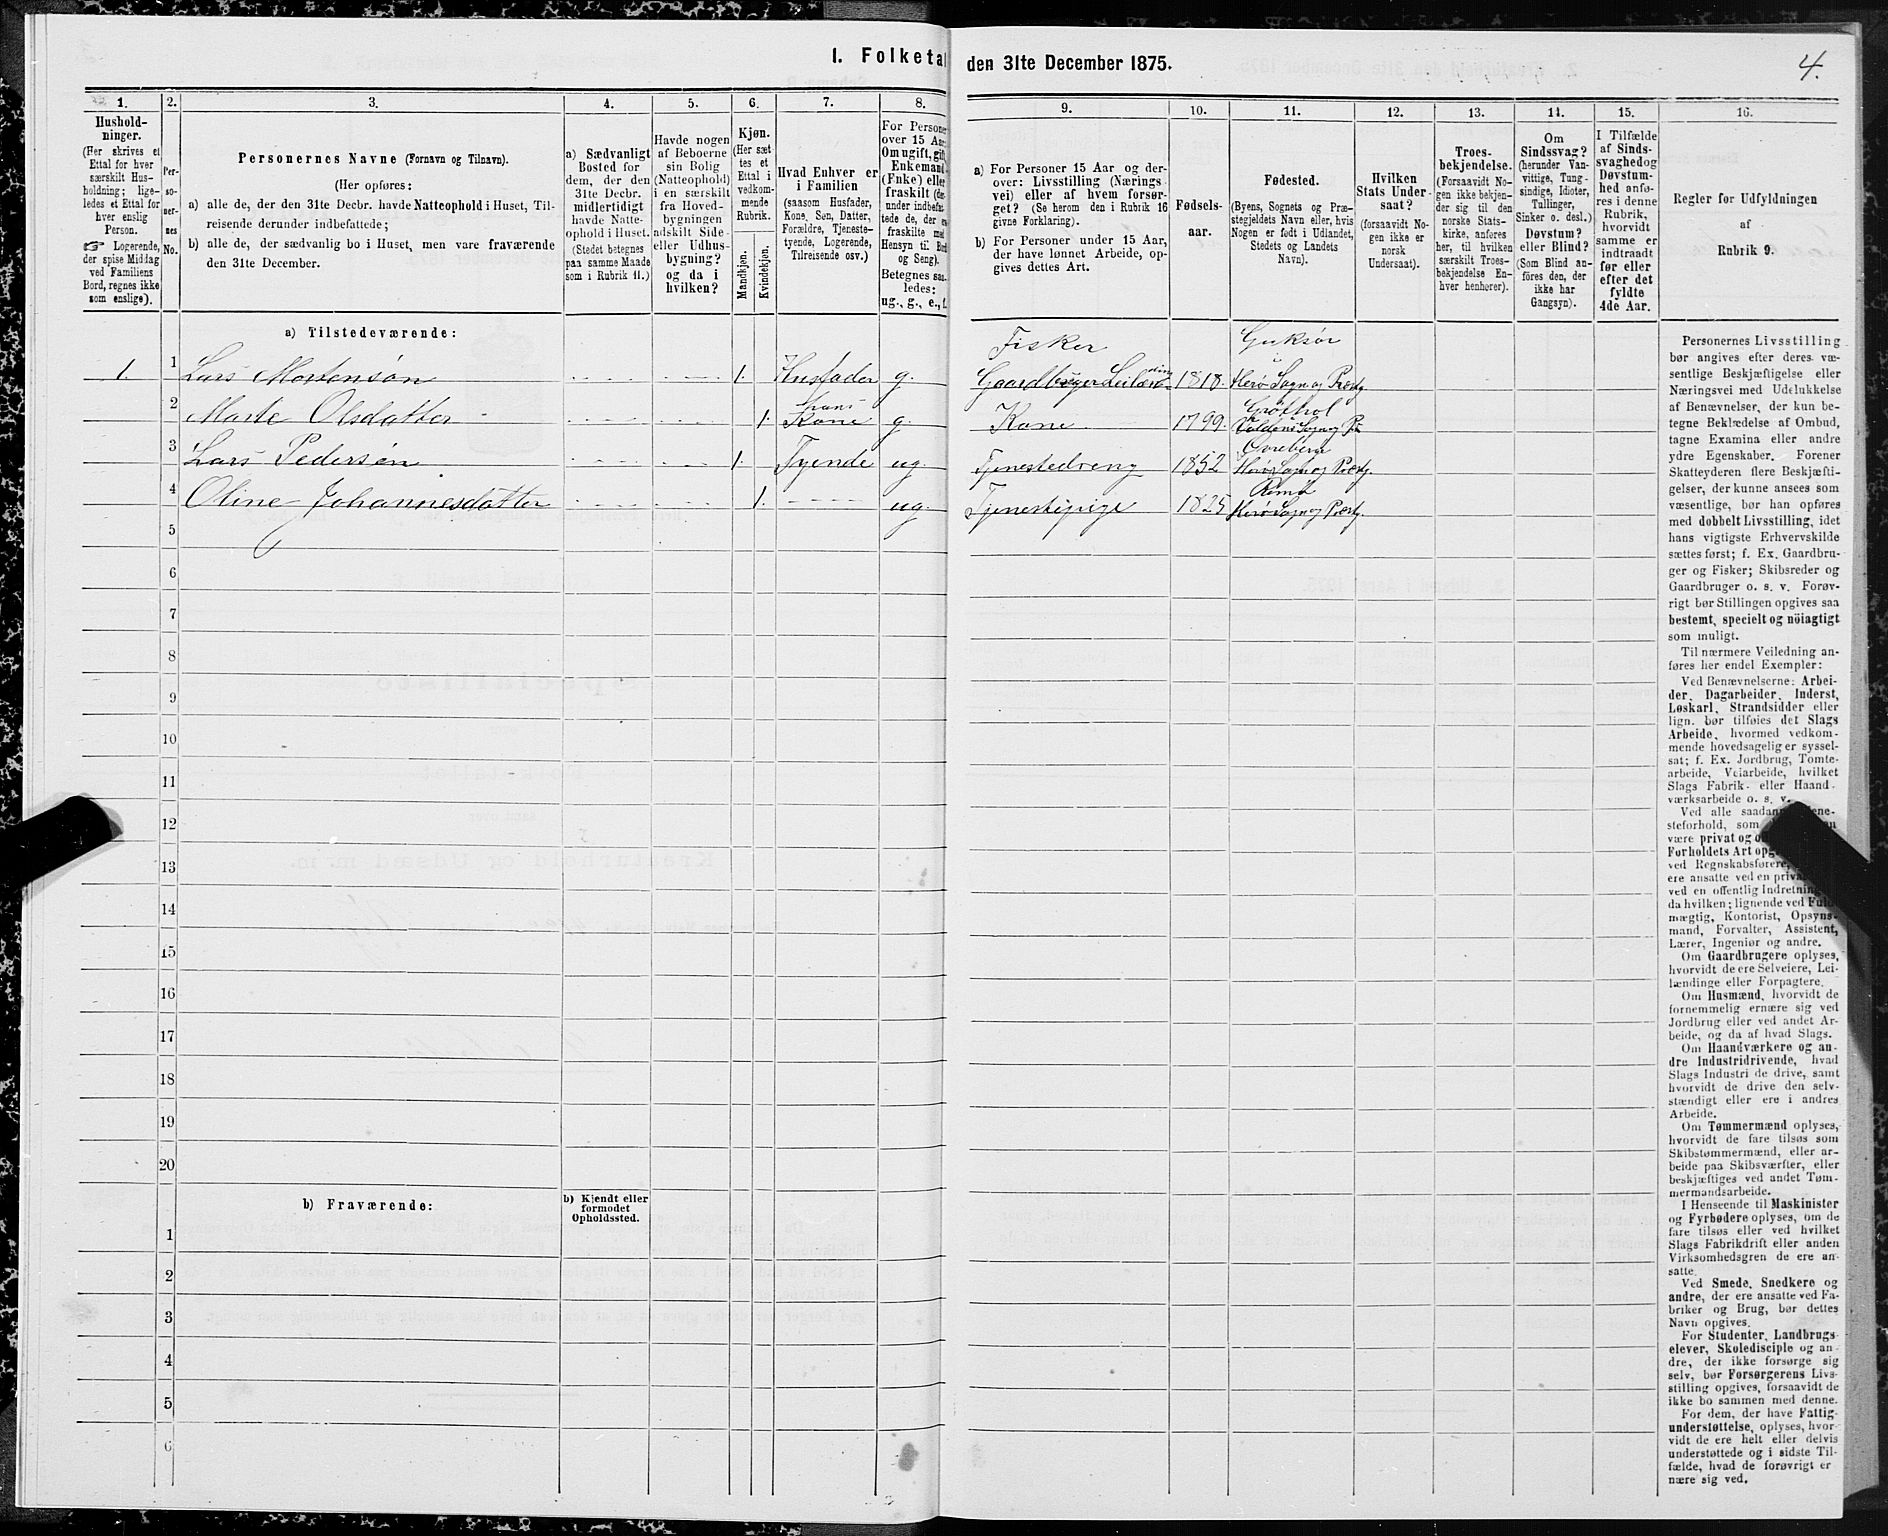 I. Folketal
den 31te December 1875.
4.
1.
2.
3.
4.
5.
6.
7.
8.
9.
10.
11.
12.
13.
14.
15.
16.
Hushold-
ninger.
(Her skrives et
Ettal for hver
særskilt Hus-
holdning; lige-
ledes et Ettal for
hver enslig
Person.
☞ Logerende,
der spise Middag
ved Familiens
Bord, regnes ikke
som enslige).
Per-
so-
ner-
nes
No.
Personernes Navne (Fornavn og Tilnavn).
(Her opføres:
a) alle de, der den 31te Decbr. havde Natteophold i Huset, Til-
reisende derunder indbefattede;
b) alle de, der sædvanlig bo i Huset, men vare fraværende
den 31te December.
a) Sædvanligt
Bosted for
dem, der den
31te Decbr.
midlertidigt
havde Natte-
ophold i Huset.
(Stedet betegnes
paa samme Maade
som i Rubrik 11.)
Havde nogen
af Beboerne
sin Bolig
(Natteophold)
i en særskilt
fra Hoved-
bygningen
adskilt Side-
eller Udhus-
bygning?
og da i
hvilken?
Kjøn.
(Her sæt-
tes et
Ettal i
vedkom-
mende
Rubrik.
Mandkjøn.
Kvindekjøn.
Hvad Enhver er
i Familien
(saasom Husfader,
Kone, Søn, Datter,
Forældre, Tjeneste-
tyende, Logerende,
Tilreisende osv.)
For Personer
over 15 Aar:
Om ugift, gift,
Enkemand
(Enke) eller
fraskilt (der-
under indbefat-
tede de, der er
fraskilte med
Hensyn til Bord
og Seng).
Betegnes saa-
ledes:
ug., g., e., f.
a) For Personer 15 Aar og der-
over: Livsstilling (Nærings-
vei) eller af hvem forsør-
get? (Se herom den i Rubrik 16
givne Forklaring).
b) For Personer under 15 Aar,
der have lønnet Arbeide, op-
gives dettes Art.
Fødsels-
aar.
Fødested.
(Byens, Sognets og Præ-
stegjeldets Navn eller, hvis
Nogen er født i Udlandet,
Stedets og Landets
Navn).
Hvilken
Stats Under-
saat?
(forsaavidt No-
gen ikke er
norsk
Undersaat).
Troes-
bekjendelse.
(Forsaavidt No-
gen ikke bekjen-
der sig til den
norske Stats-
kirke, anføres
her, til hvilken
særskilt Troes-
bekjendelse En-
hver henhører).
Om
Sindssvag?
(herunder Van-
vittige, Tung-
sindige, Idioter,
Tullinger,
Sinker o. desl.)
Døvstum?
eller Blind?
(Som Blind an-
føres den, der
ikke har
Gangsyn).
I Tilfælde
af Sinds-
svaghedog
Døvstum-
hed anfø-
res i denne
Rubrik,
hvorvidt
samme er
indtraadt
før eller
efter det
fyldte
4de Aar.
Regler for Udfyldningen
af
Rubrik 9.
a) Tilstedeværende:
Fisker
Gurksør
1. 1 Lars Mortensøn 1. Husfader g. Gaardbruger Leilænding 1818. Herø Sogn og Præstg.
hans
2 Marte Olsdatter 1. Kone g. Kone 1799. Voldens Sogn og Pr.
3 Lars Pedersøn 1. Tyende ug. Tjenestedreng 1852 Herø Sogn og Præstg.
4 Oline Johannesdatter 1. ug. Tjenestepige 1825 Herø Sogn og Præstg.
5
6
7
8
9
10
11
12
13
14
15
16
17
18
19
20
b) Fraværende:
b) Kjendt eller
formodet
Opholdssted.
1
2
3
4
5
6
Personernes Livsstilling
bør angives efter deres væ-
sentlige Beskjæftigelse eller
Næringsvei med Udelukkelse
af Benævnelser, der kun be-
tegne Beklædelse af Ombud,
tagne Examina eller andre
ydre Egenskaber. Forener
Skatteyderen flere Beskjæfti-
gelser, der kunne ansees som
væsentlige, bør han opføres
med dobbelt Livsstilling, idet
hans vigtigste Erhvervskilde
sættes først; f. Ex. Gaardbru-
ger og Fisker; Skibsreder og
Gaardbruger o. s. v. Forøv-
rigt bør Stillingen opgives saa
bestemt, specielt og nöiagtigt
som muligt.
Til nærmere Veiledning an-
føres her endel Exempler:
Ved Benævnelserne: Arbei-
der, Dagarbeider, Inderst,
Løskarl, Strandsidder eller
lign. bør tilføies det Slags
Arbeide, hvormed vedkom-
mende hovedsagelig er syssel-
sat; f. Ex. Jordbrug, Tomte-
arbeide, Veiarbeide, hvilket
Slags Fabrik- eller Haand-
værksarbeide o. s. v.
Ved alle saadanne
steforhold, som
være privat og
Forholdets Art
ved Regnskabsførere,
ere ansatte ved en
ved en offentlig Indretning
da hvilken; lignende ved Fuld-
mægtig, Kontorist, Opsyns-
mand, Forvalter, Assistent,
Lærer, Ingeniør og andre.
Om Gaardbrugere oplyses,
hvorvidt de ere Selveiere, Lei-
lændinge eller Forpagtere.
Om Husmænd, hvorvidt de
fornemmelig ernære sig ved
Jordbrug eller ved andet Ar-
beide, og da af hvad Slags.
Om Haandværkere og an-
dre Industridrivende, hvad
Slags Industri de drive, samt
hvorvidt de drive den selv-
stændigt eller ere i andres
Arbeide.
Om Tømmermænd oplyses,
hvorvidt de fare tilsøs som
Skibstømmermænd, eller ar-
beide paa Skibsværfter, eller
beskjæftiges ved andet Tøm-
mermandsarbeide.
I Henseende til Maskinister
og Fyrbødere oplyses, om de
fare tilsøs eller ved hvilket
Slags Fabrikdrift eller anden
Virksomhedsgren de ere an-
satte.
Ved Smede, Snedkere og
andre, der ere ansatte ved Fa-
briker og Brug, bør dettes
Navn opgives.
For Studenter, Landbrugs-
elever, Skoledisciple og an-
dre, der ikke forsørge sig
selv, bør Forsørgerens Livs-
stilling opgives, forsaavidt de
ikke bo sammen med denne.
For dem, der have Fattig-
understøttelse, oplyses, hvor-
vidt de ere helt eller delvis
understøttede og i sidste Til-
fælde, hvad de forøvrigt er-
nære sig ved.